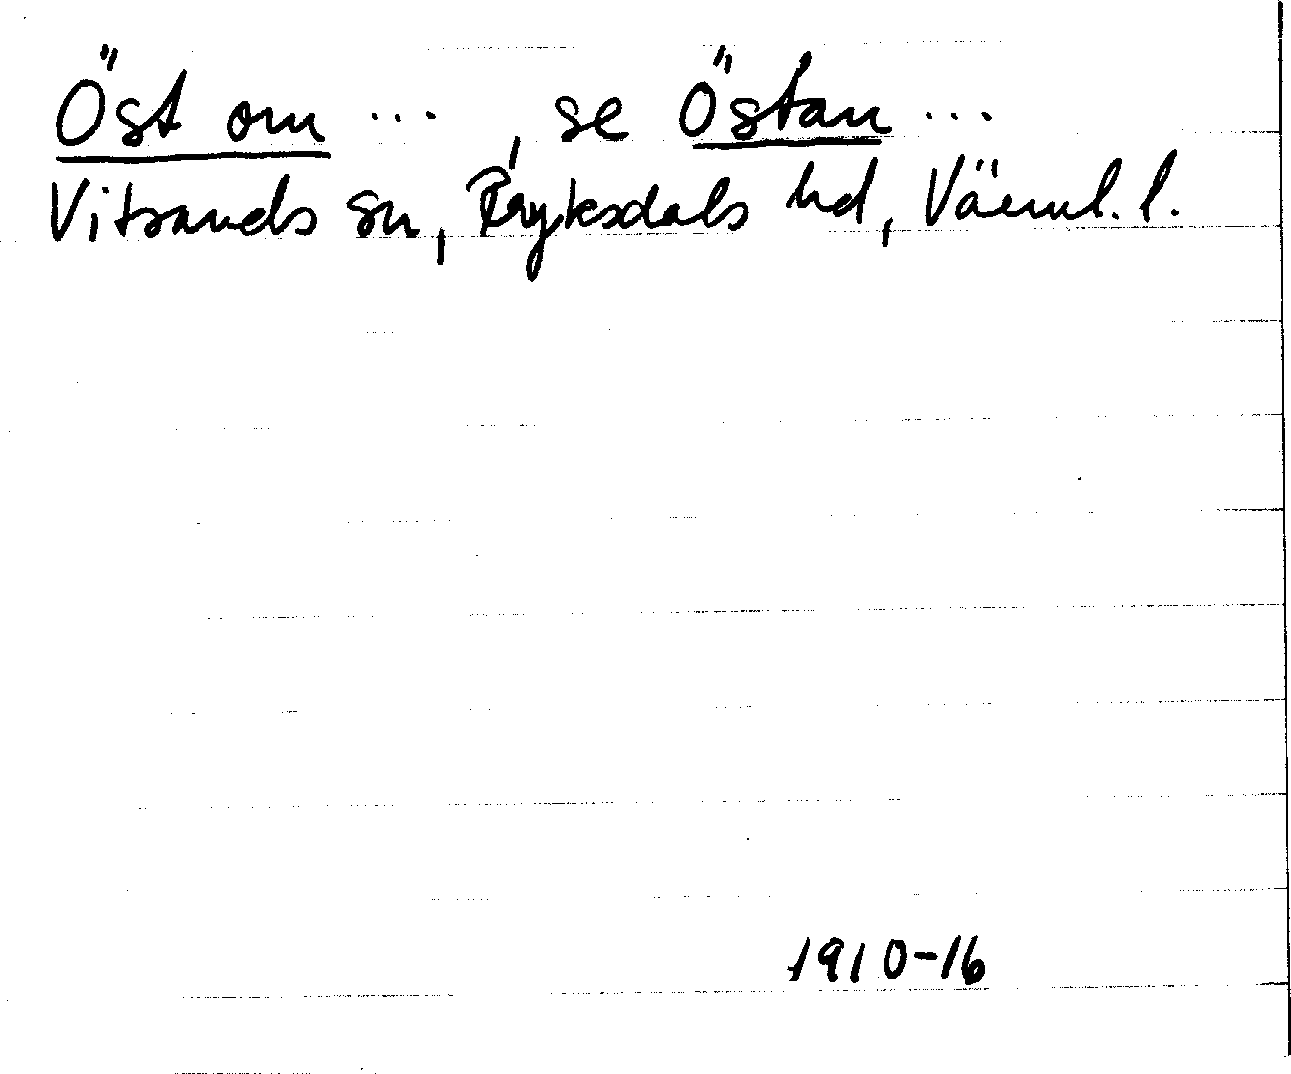 Öst om ... , se Östan ...
Vitsands sn, Fryksdals hd, Värml. l.
1910-16